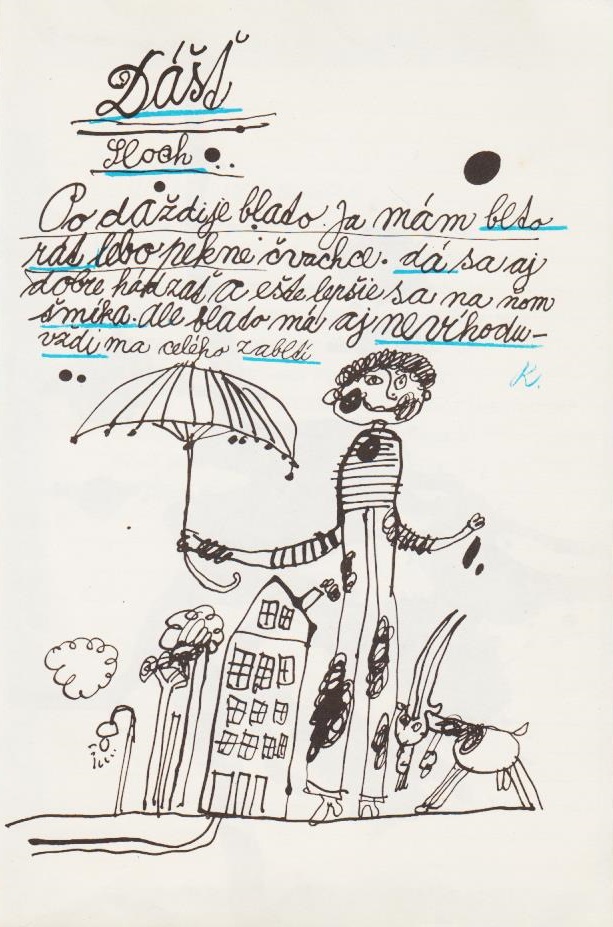 Dášť
Sloch
Po daždije blato. Ja mám blto
rát lebo pekne čvachce. dá sa aj
dobře hádzať a ešte lepšie sa na nom
šmíka. Ale blato má aj nevíhodu-
vždi ma celého zablti
K.